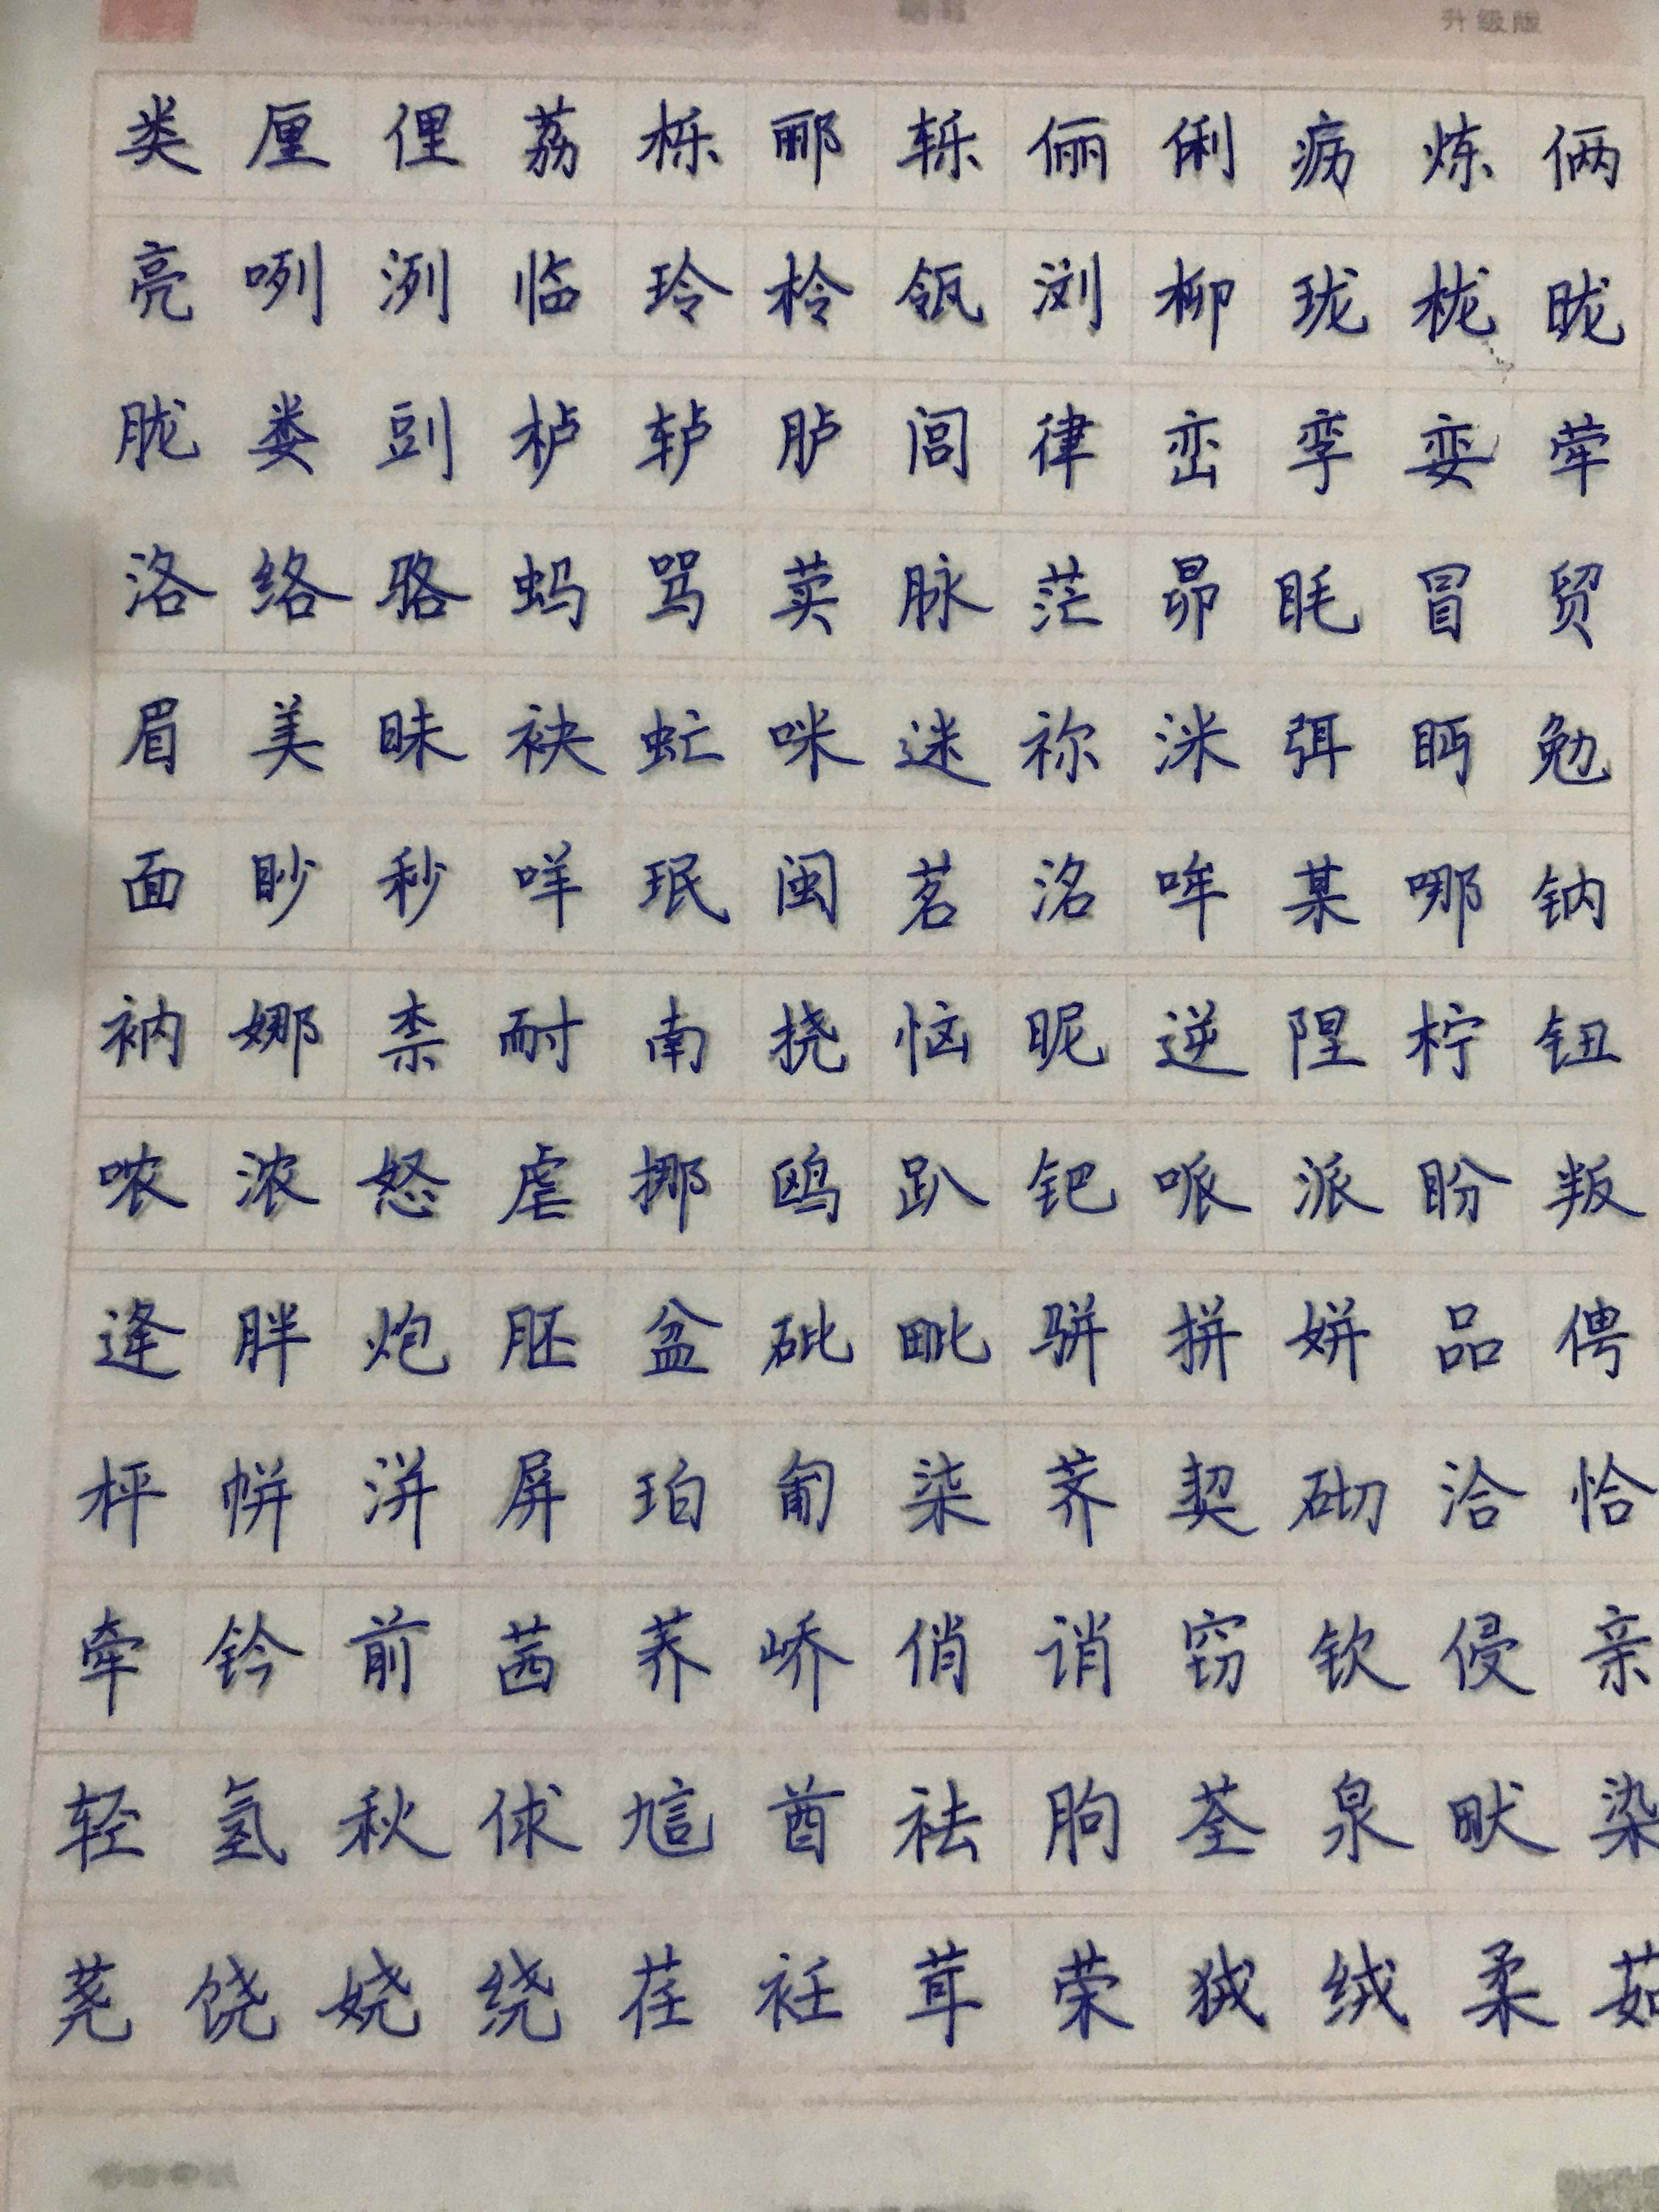 升级版
类厘俚荔栎郦轹俪俐疬炼俩
亮咧洌临玲柃瓴浏柳珑栊昽
胧娄剅栌轳胪闾律峦孪娈荦
洛络骆蚂骂荬脉茫昴眊冒贸
眉美昧袂虻咪迷祢洣弭眄勉
面眇秒咩珉闽茗洺哞某哪钠
衲娜柰耐南挠恼昵逆陧柠钮
哝浓怒虐挪鸥趴钯哌派盼叛
逄胖炮胚盆砒毗骈拼姘品俜
枰帡洴屏珀匍柒荞契砌洽恰
牵钤前茜荞峤俏诮窃钦侵亲
轻氢秋俅訄酋祛朐荃泉畎染
荛饶娆绕荏衽茸荣狨绒柔茹